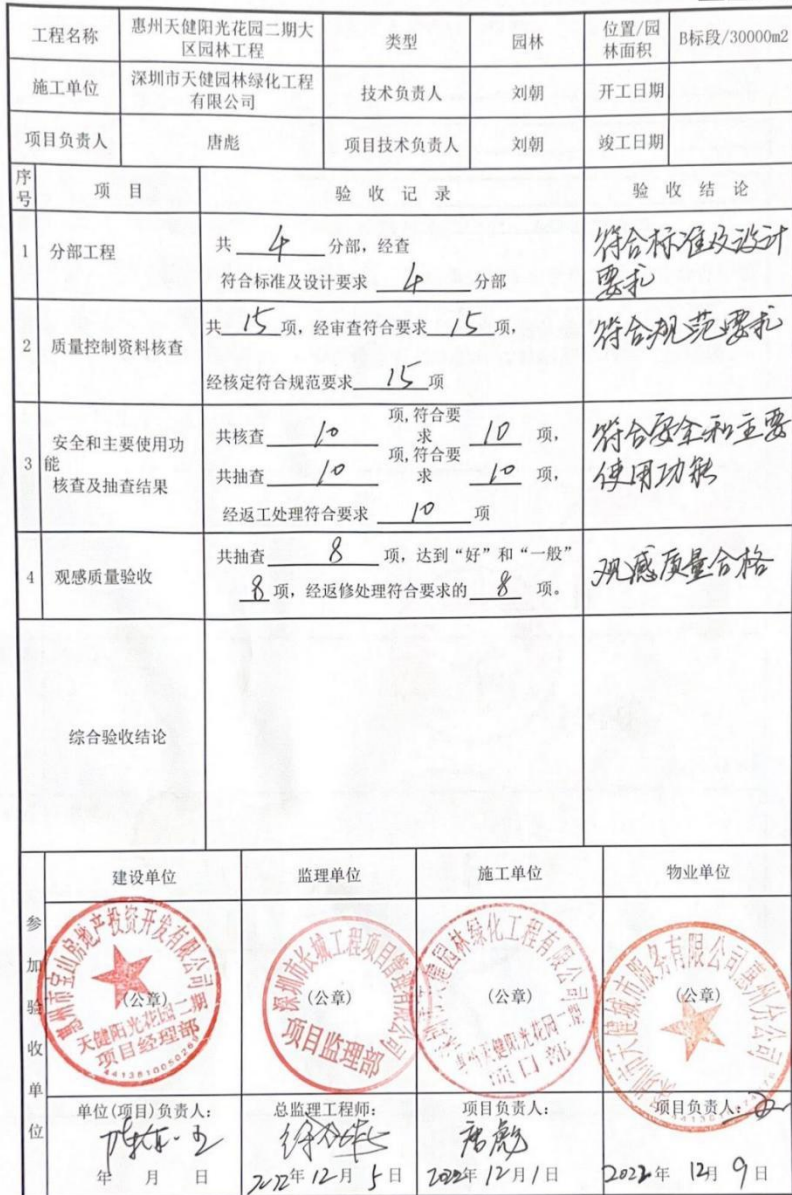 工程名称 惠州天健阳光花园二期大区园林工程 类型 园林 位置/园林面积 B标段/30000m2
施工单位 深圳市天健园林绿化工程有限公司 技术负责人 刘朝 开工日期
项目负责人 唐彪 项目技术负责人 刘朝 竣工日期
序号 项 目 验 收 记 录 验 收 结 论
1 分部工程 共 4 分部，经查
符合标准及设计要求 4 分部
符合标准及设计
要求
2 质量控制资料核查 共 15 项，经审查符合要求 15 项，
经核定符合规范要求 15 项
符合规范要求
3 安全和主要使用功能
核查及抽查结果
共核查 10 项,符合要求 10 项，
共抽查 10 项,符合要求 10 项，
经返工处理符合要求 10 项
符合安全和主要
使用功能
4 观感质量验收 共抽查 8 项，达到“好”和“一般”
8 项，经返修处理符合要求的 8 项。
观感质量合格
综合验收结论
参加验收单位
建设单位 监理单位 施工单位 物业单位
惠州市宝山房地产投资开发有限公司
天健阳光花园二期
项目经理部
(公章)
深圳市长城工程项目管理有限公司
项目监理部
(公章)
深圳市天健园林绿化工程有限公司
惠州天健阳光花园二期
项目部
(公章)
深圳市天健城市服务有限公司惠州分公司
(公章)
单位(项目)负责人： 总监理工程师： 项目负责人： 项目负责人：
唐彪
年 月 日 2022年 12月 5日 2022年 12月 1日 2022年 12月 9日